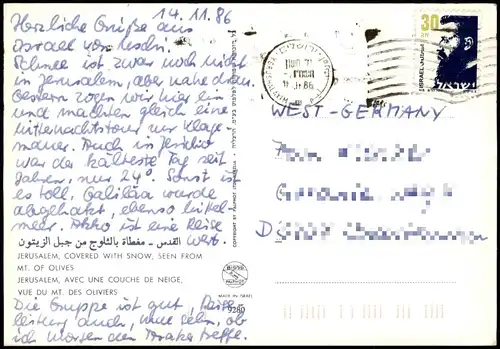 14.11.86
Herzliche Grüße aus
Israel von
Schnee ist zwar noch nicht
in Jerusalem, aber nahe dran.
Gestern zogen wir hier ein
und machten gleich eine
Mitternachtstour zur Klage-
mauer. Auch in Jericho
war der kälteste Tag seit
Jahren, nur 24°. Sonst ist
es toll, Galiläa wurde
abgehakt, ebenso Mittel-
meer. Akko ist eine Reise
wert.
القدس - مغطاة بالثلوج من جبل الزيتون
JERUSALEM, COVERED WITH SNOW, SEEN FROM
MT. OF OLIVES
JERUSALEM, AVEC UNE COUCHE DE NEIGE,
VUE DU MT. DES OLIVIERS
Die Gruppe ist gut, Reise-
leitung auch, mal sehn, ob
ich morgen den Araker treffe.
MADE IN ISRAEL
9280
30
ISRAEL
ישראל
ירושלים
WEST-GERMANY
D